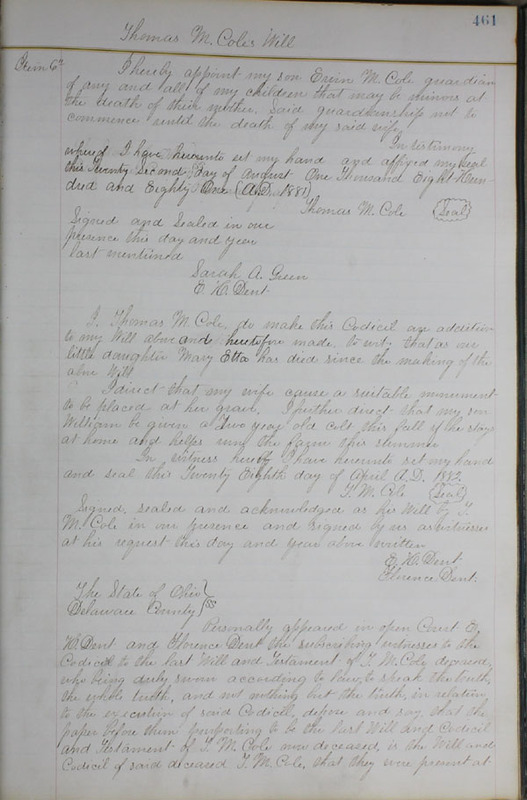 461
Thomas M. Coles Will
Item 6th I hereby appoint my son Ervin M. Cole guardian
of any and all of my children that may be minors at
the death of their mother. Said guardianship not to
commence until the death of my said wife.
In testimony
whereof I have hereunto set my hand and affixed my seal
this Twenty Second day of August One Thousand Eight Hun-
dred and Eighty One (A.D. 1881)
Thomas M. Cole (Seal)
Signed and Sealed in our
presence this day and year
last mentioned
Sarah A. Green
E. H. Dent.
I, Thomas M. Cole, do make this Codicil an addition
to my Will above and heretofore made. To wit, that as our
little daughter Mary Etta has died since the making of the
above Will
I direct that my wife cause a suitable monument
to be placed at her grave. I further direct that my son
William be given a two year old colt this fall if he stays
at home and helps run the farm this summer
In witness hereof I have hereunto set my hand
and seal this Twenty Eighth day of April A.D. 1882.
T. M. Cole (Seal)
Signed, sealed and acknowledged as his Will by T.
M. Cole in our presence and signed by us as witnesses
at his request this day and year above written
E. H. Dent
Florence Dent.
The State of Ohio }
Delaware County } SS
Personally appeared in open Court E.
H. Dent and Florence Dent the subscribing witnesses to the
Codicil to the last Will and Testament of T. M. Cole, deceased,
who being duly sworn according to law, to speak the truth,
the whole truth, and not nothing but the truth, in relation
to the execution of said Codicil, depose and say, that the
paper before them purporting to be the last Will and Codicil
and Testament of T. M. Cole now deceased, is the Will and
Codicil of said deceased T. M. Cole, that they were present at